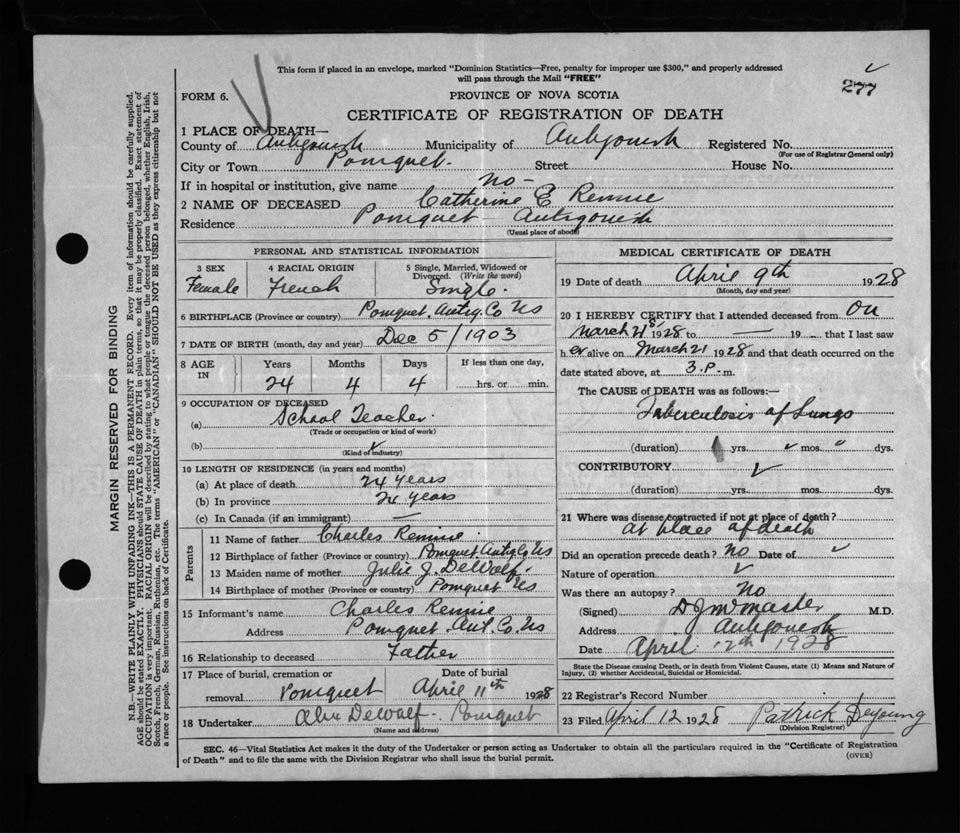 This form if placed in an envelope, marked "Dominion Statistics—Free, penalty for improper use $300," and properly addressed
will pass through the Mail "FREE"
277
FORM 6.
PROVINCE OF NOVA SCOTIA
CERTIFICATE OF REGISTRATION OF DEATH
1 PLACE OF DEATH—
County of Antigonish Municipality of Antigonish Registered No.
(For use of Registrar General only)
City or Town Pomquet. Street House No.
If in hospital or institution, give name no-
2 NAME OF DECEASED Catherine E Rennie
Residence Pomquet Antigonish
(Usual place of abode)
PERSONAL AND STATISTICAL INFORMATION
3 SEX 4 RACIAL ORIGIN 5 Single, Married, Widowed or
Divorced. (Write the word)
Female French Single.
6 BIRTHPLACE (Province or country) Pomquet. Antig. Co Ns
7 DATE OF BIRTH (month, day and year) Dec 5/1903
8 AGE IN Years Months Days If less than one day,
24 4 4 hrs. or min.
9 OCCUPATION OF DECEASED
(a) School Teacher.
(Trade or occupation or kind of work)
(b)
(Kind of industry)
10 LENGTH OF RESIDENCE (in years and months)
(a) At place of death 24 years
(b) In province 24 years
(c) In Canada (if an immigrant) —
Parents
11 Name of father Charles Rennie
12 Birthplace of father (Province or country) Pomquet. Antig Co Ns
13 Maiden name of mother Julie J. DeWolf.
14 Birthplace of mother (Province or country) Pomquet Ns
15 Informant's name Charles Rennie
Address Pomquet. Ant. Co. Ns
16 Relationship to deceased Father
17 Place of burial, cremation or Date of burial
removal Pomquet April 11th 1928
18 Undertaker DeWolf- Pomquet
(Name and address)
MEDICAL CERTIFICATE OF DEATH
19 Date of death April 9th 1928
(Month, day and year)
20 I HEREBY CERTIFY that I attended deceased from On
March 21st 1928 to — 19 — that I last saw
h er alive on March 21 1928 and that death occurred on the
date stated above, at 3. P. m.
The CAUSE OF DEATH was as follows:—
Tuberculosis of Lungs
(duration) 1 yrs. mos. dys.
CONTRIBUTORY
(duration) yrs. mos. dys.
21 Where was disease contracted if not at place of death?
at place of death
Did an operation precede death? no Date of
Nature of operation
Was there an autopsy? No
(Signed) M.D.
Address Antigonish
Date April 12th 1928
State the Disease causing Death, or in death from Violent Causes, state (1) Means and Nature of
Injury, (2) whether Accidental, Suicidal or Homicidal.
22 Registrar's Record Number
23 Filed April 12 1928 Patrick Deyoung
(Division Registrar)
SEC. 46—Vital Statistics Act makes it the duty of the Undertaker or person acting as Undertaker to obtain all the particulars required in the "Certificate of Registration
of Death" and to file the same with the Division Registrar who shall issue the burial permit.
(OVER)
MARGIN RESERVED FOR BINDING
N.B.—WRITE PLAINLY WITH UNFADING INK—THIS IS A PERMANENT RECORD. Every item of information should be carefully supplied.
AGE should be stated EXACTLY. PHYSICIANS should STATE CAUSE OF DEATH in plain terms, so that it may be properly classified. Exact statement of
OCCUPATION is very important. RACIAL ORIGIN will be described by stating to what people or tongue the deceased person belonged, whether English, Irish,
Scotch, French, German, Russian, Ruthenian, etc. The terms "AMERICAN" or "CANADIAN" SHOULD NOT BE USED as they express citizenship but not
a race or people. See instructions on back of Certificate.